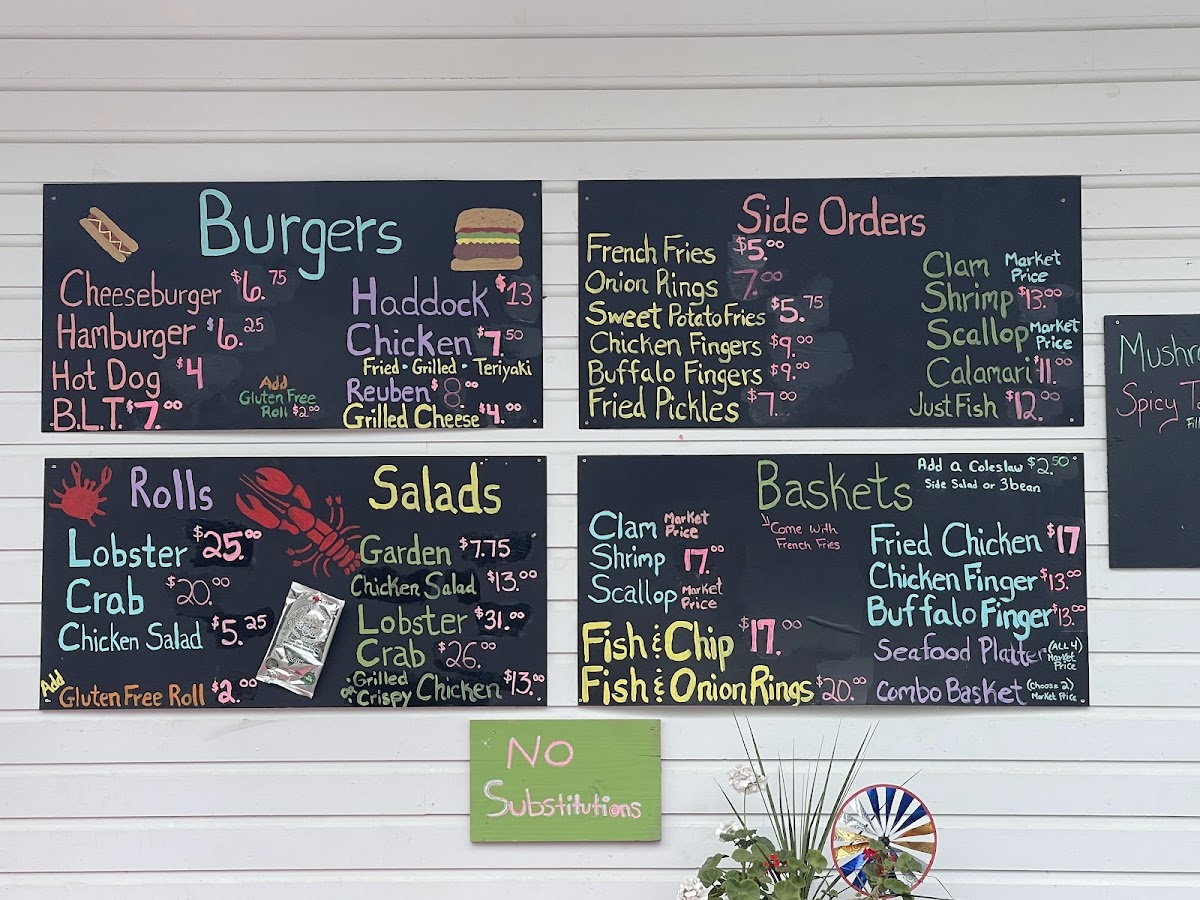 Burgers
Cheeseburger $6.75
Hamburger $6.25
Hot Dog $4
B.L.T. $7.00
Add
Gluten Free
Roll $2.00
Haddock $13
Chicken $7.50
Fried • Grilled • Teriyaki
Reuben $8.00
Grilled Cheese $4.00
Side Orders
French Fries $5.00
Onion Rings 7.00
Sweet Potato Fries $5.75
Chicken Fingers $9.00
Buffalo Fingers $9.00
Fried Pickles $7.00
Clam Market Price
Shrimp $13.00
Scallop Market Price
Calamari $11.00
Just Fish $12.00
Rolls
Lobster $25.00
Crab $20.00
Chicken Salad $5.25
Add Gluten Free Roll $2.00
Salads
Garden $7.75
Chicken Salad $13.00
Lobster $31.00
Crab $26.00
Grilled or Crispy Chicken $13.00
Baskets
Add a Coleslaw $2.50
Side Salad or 3bean
Come with
French Fries
Clam Market Price
Shrimp 17.00
Scallop Market Price
Fish & Chip $17.00
Fish & Onion Rings $20.00
Fried Chicken $17
Chicken Finger $13.00
Buffalo Finger $13.00
Seafood Platter (ALL 4) Market Price
Combo Basket (choose 2) Market Price
Spicy
No
Substitutions